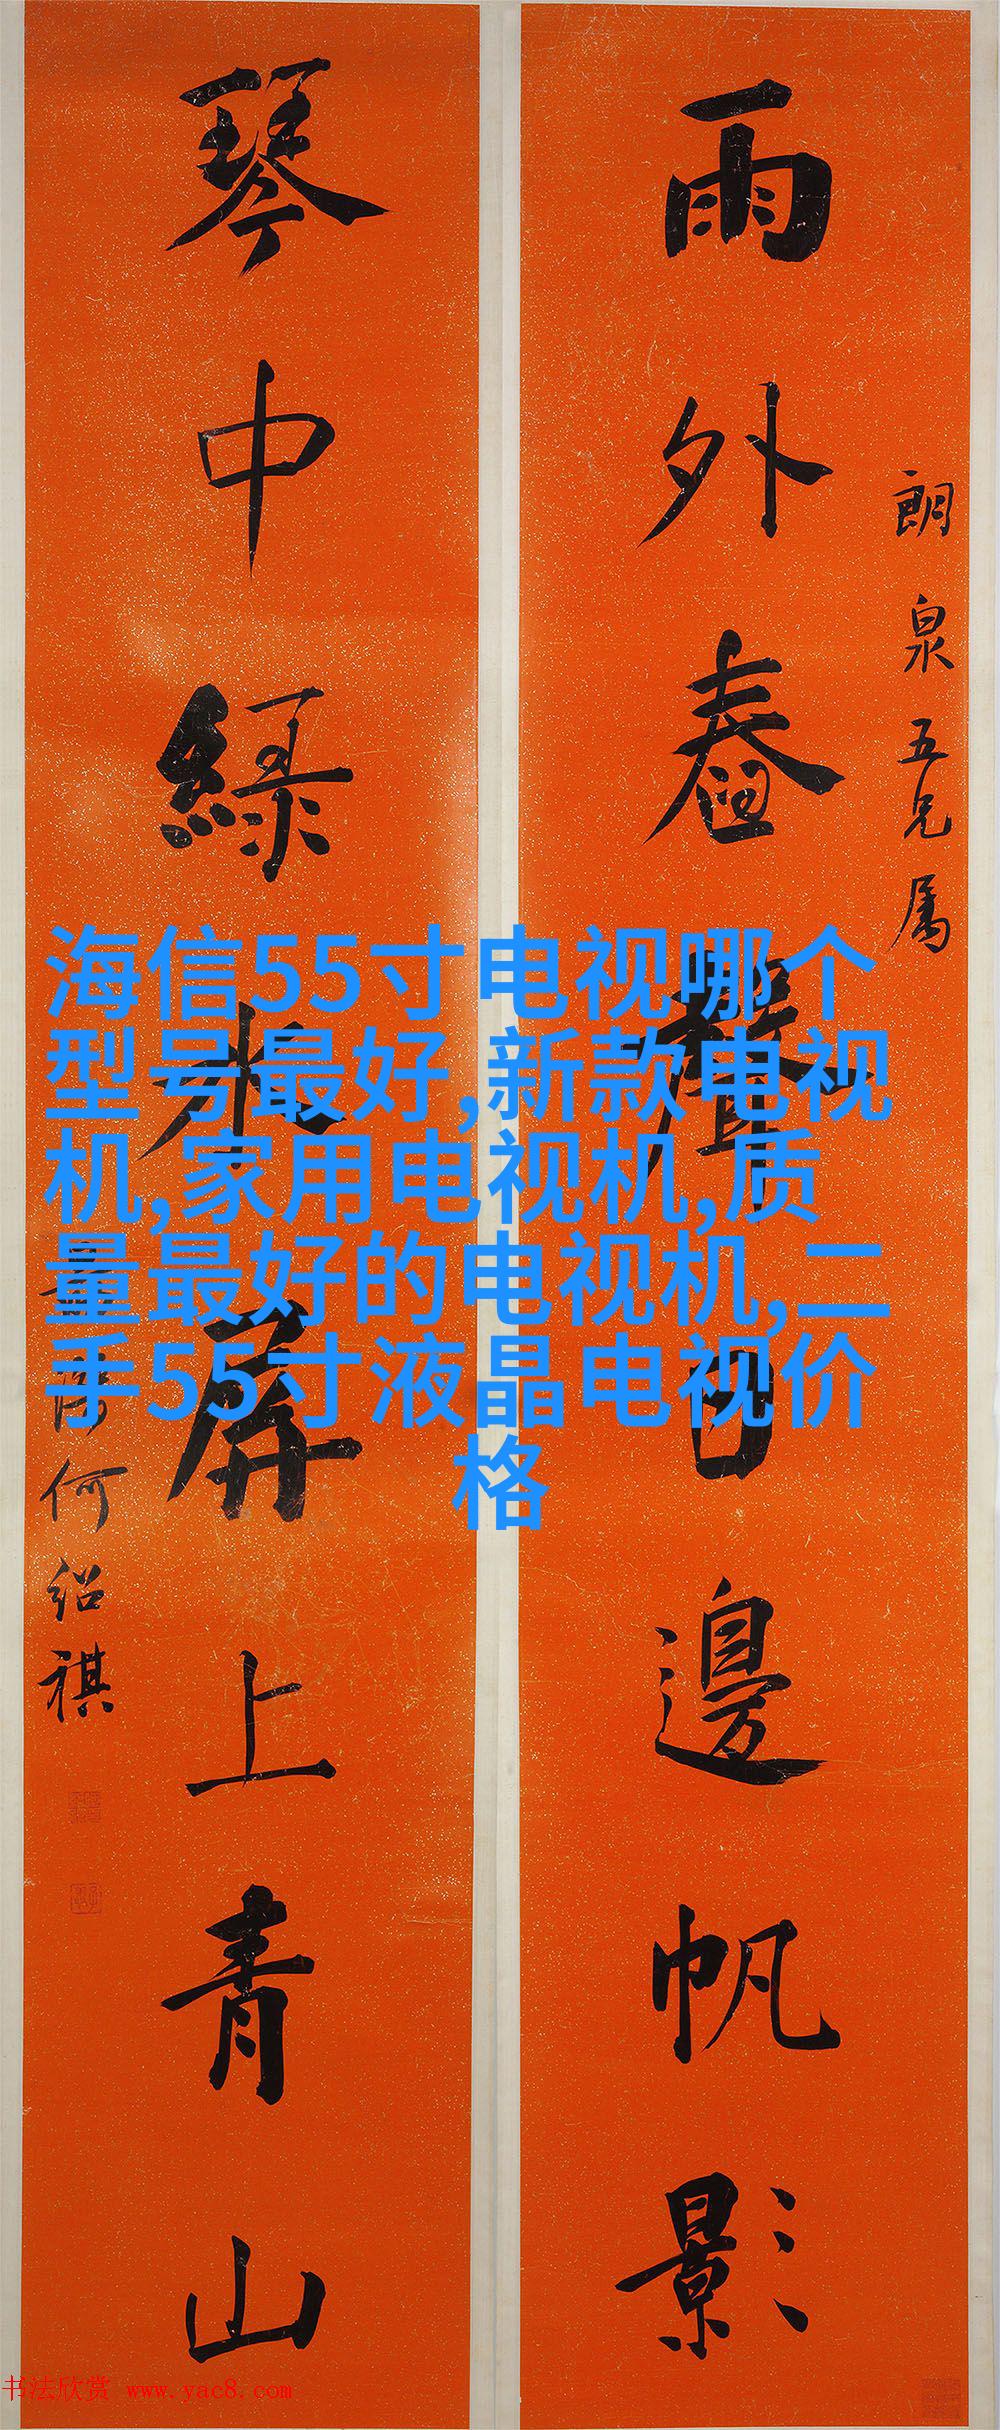 雨外舂聲日邊帆影
朗泉五兄属
琴中綠水屏上青山
何紹祺
海信55寸电视哪个
型号最好,新款电视
机,家用电视机,质
量最好的电视机,二
手55寸液晶电视价
格
书法欣赏 www.yac8.com